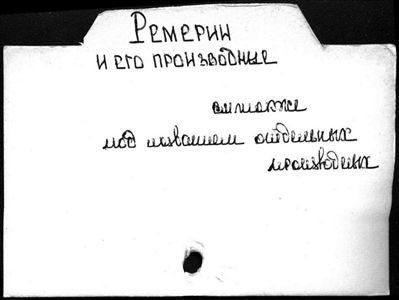 Ремерин
и его производные
см также
под названием отдельных
производных